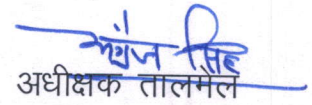 सिंह
अधीक्षक तालमेल